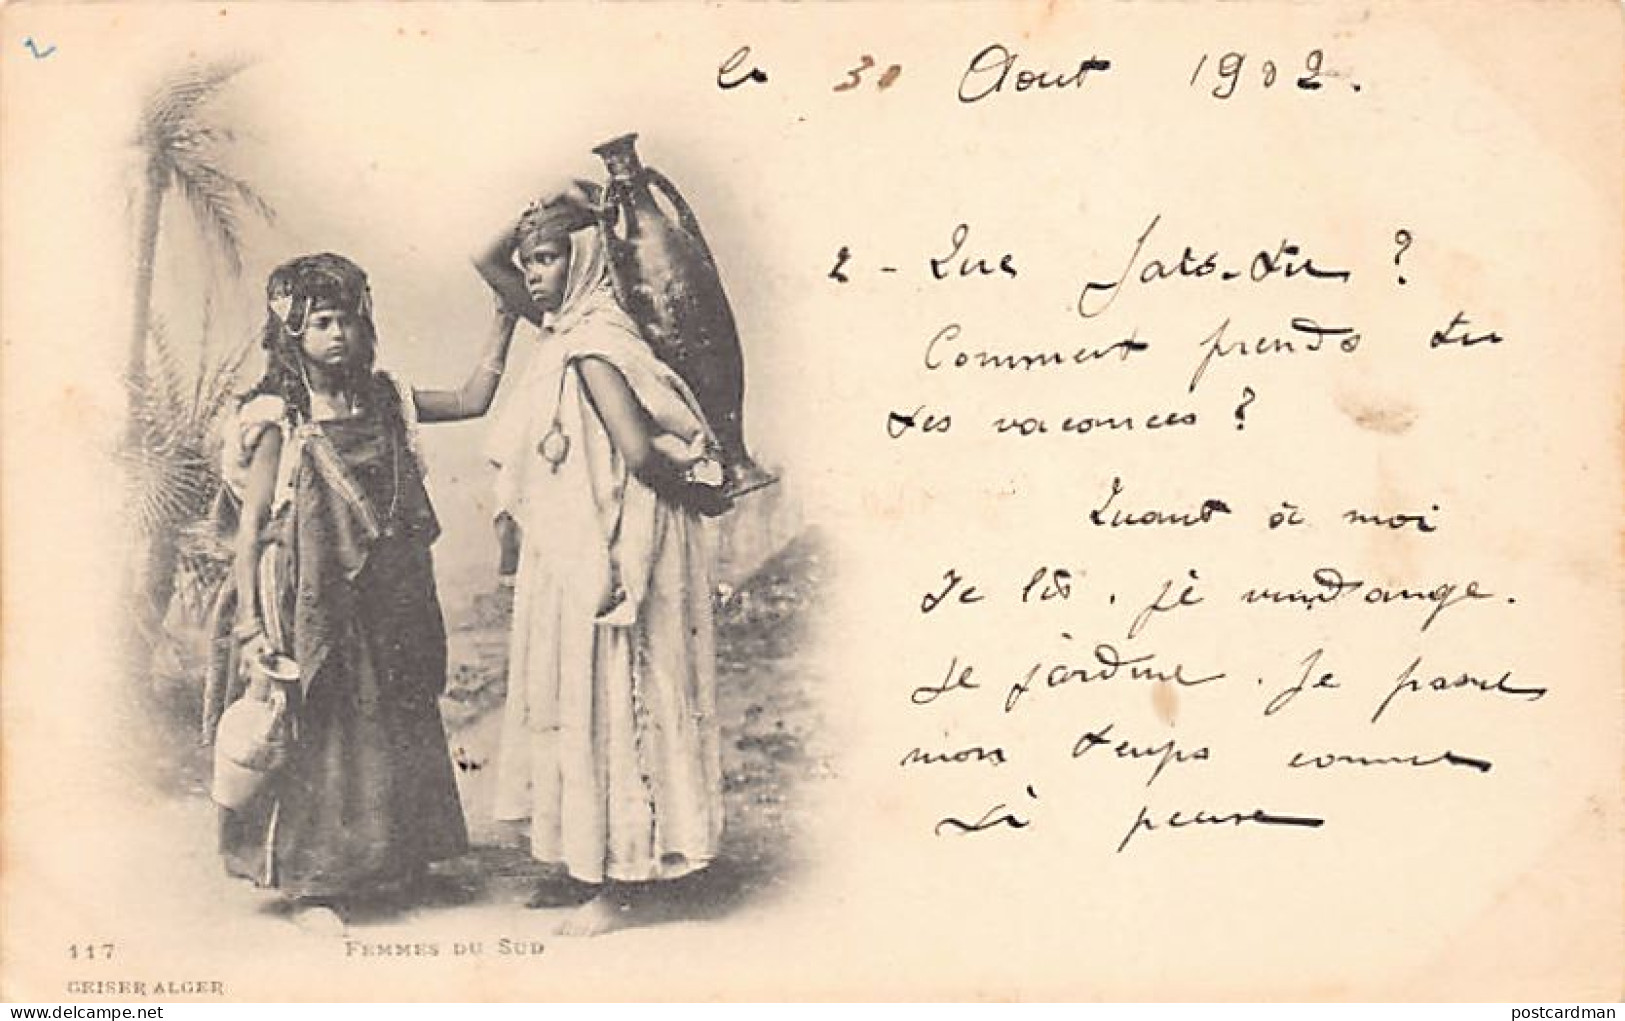 2
le 30 Aout 1902.
2 - Que fais-tu ?
Comment prends tu
tes vacances ?
Quant à moi
Je lis. je vendange.
Je jardine. Je passe
mon temps comme
je peux
117
FEMMES DU SUD
GEISER ALGER
delcampe.net
postcardman